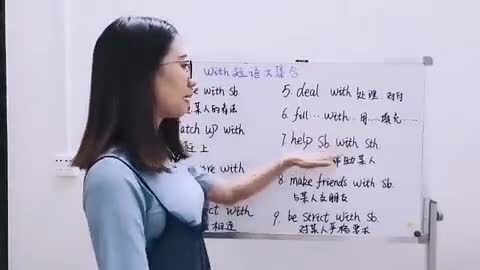 With短语大集合
e with Sb
某人的看法
atch up with
赶上
re with
ect with
相连
5. deal with 处理 对付
6. fill … with … 用……填充……
7. help Sb. with Sth.
帮助某人
8. make friends with Sb.
与某人交朋友
9. be Strict with Sb.
对某人严格要求